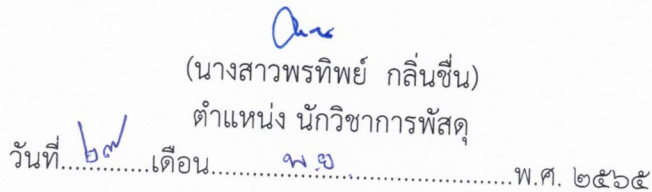 (นางสาวพรทิพย์ กลิ่นชื่น)
ตำแหน่ง นักวิชาการพัสดุ
วันที่ ๒๗ เดือน พ.ย. พ.ศ. ๒๕๖๕